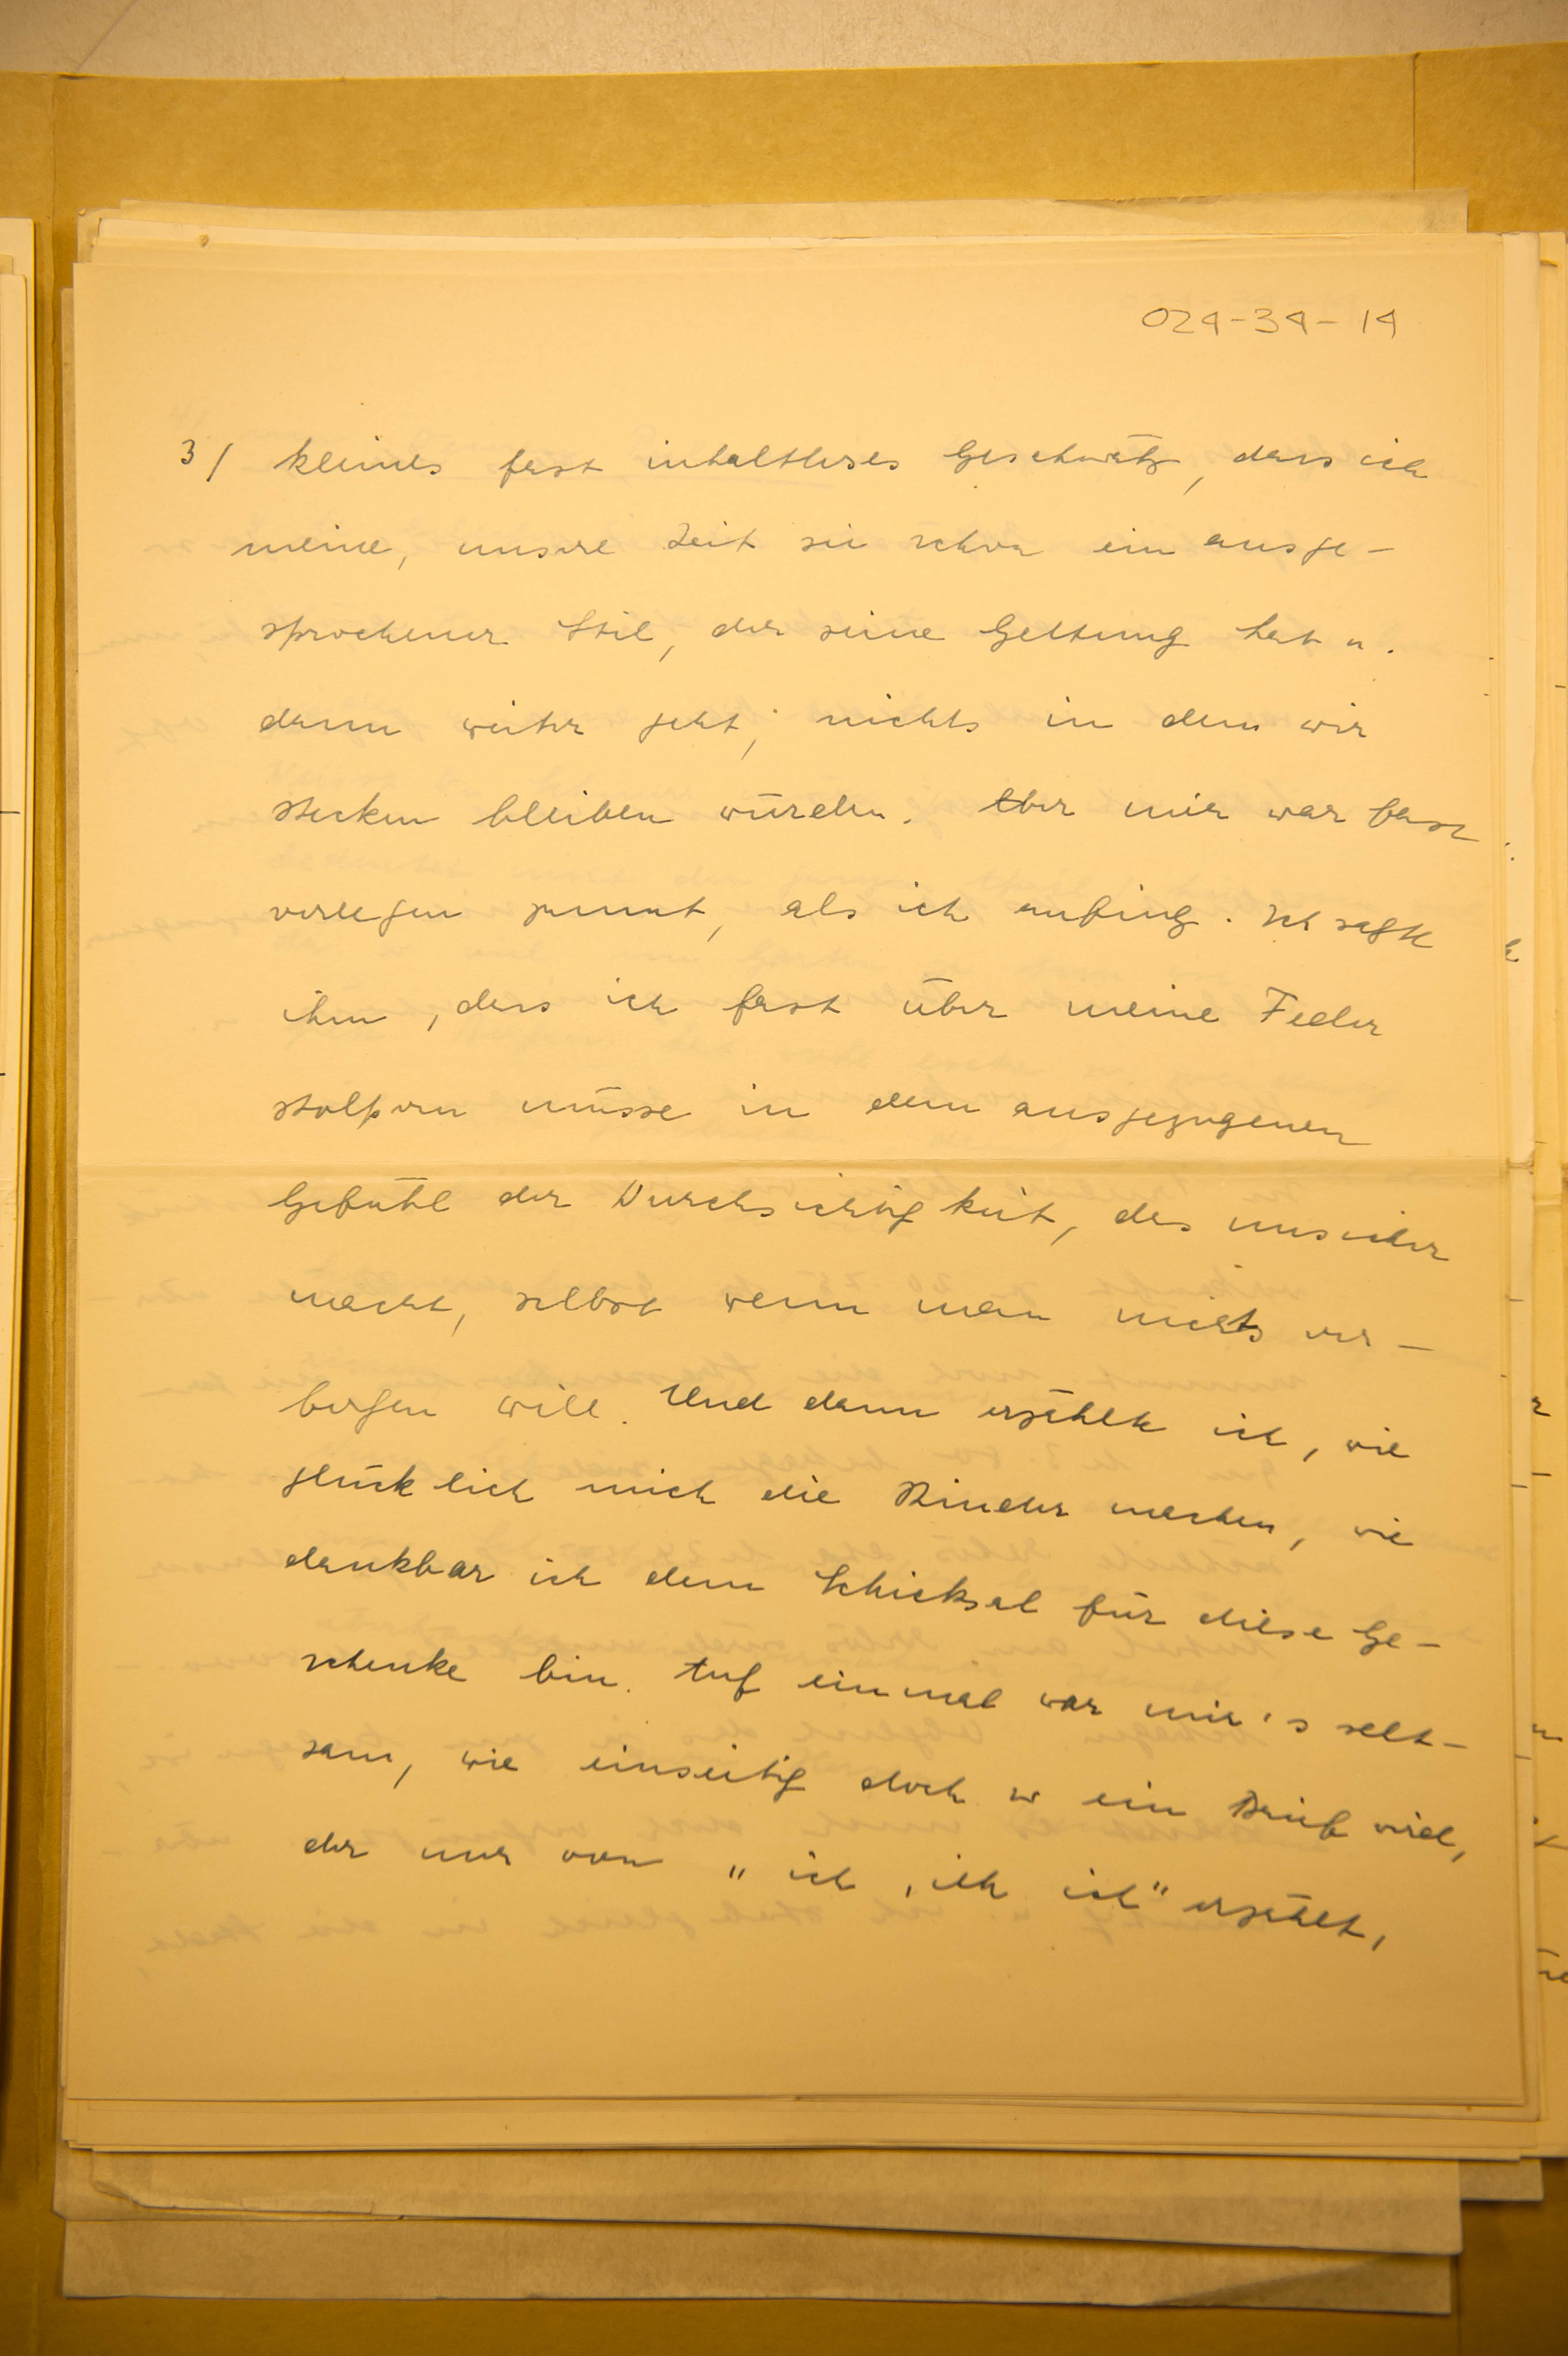 024-34-14
3/ kleines fast inhaltloses Geschwätz, dass ich
meine, unsere Zeit sei schon ein ausge-
sprochener Stil, der seine Geltung hat u.
dann weiter geht; nichts in dem wir
stecken bleiben würden. Aber mir war fast
verlegen zumut, als ich anfing. Ich sagte
ihm, dass ich fast über meine Feder
stolpern müsse in dem ausgezogenen
Gefühl der Durchsichtigkeit, das unsicher
macht, selbst wenn man nichts ver-
bergen will. Und dann erzählte ich, wie
glücklich mich die Kinder machen, wie
dankbar ich dem Schicksal für diese Ge-
schenke bin. Auf einmal war mir's selt-
sam, wie einseitig doch so ein Brief wird,
der nur von "ich, ich ich" erzählt,